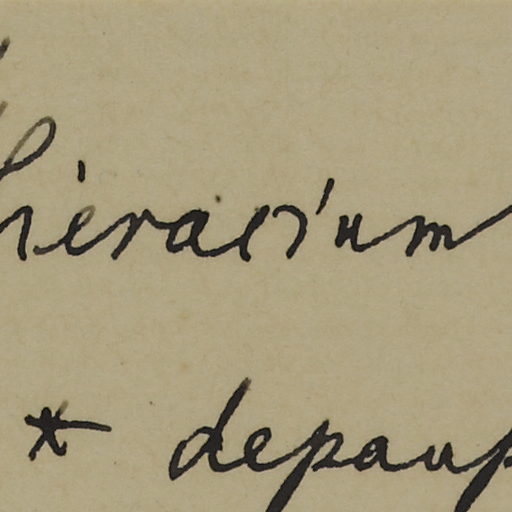 Hieracium
* depaup